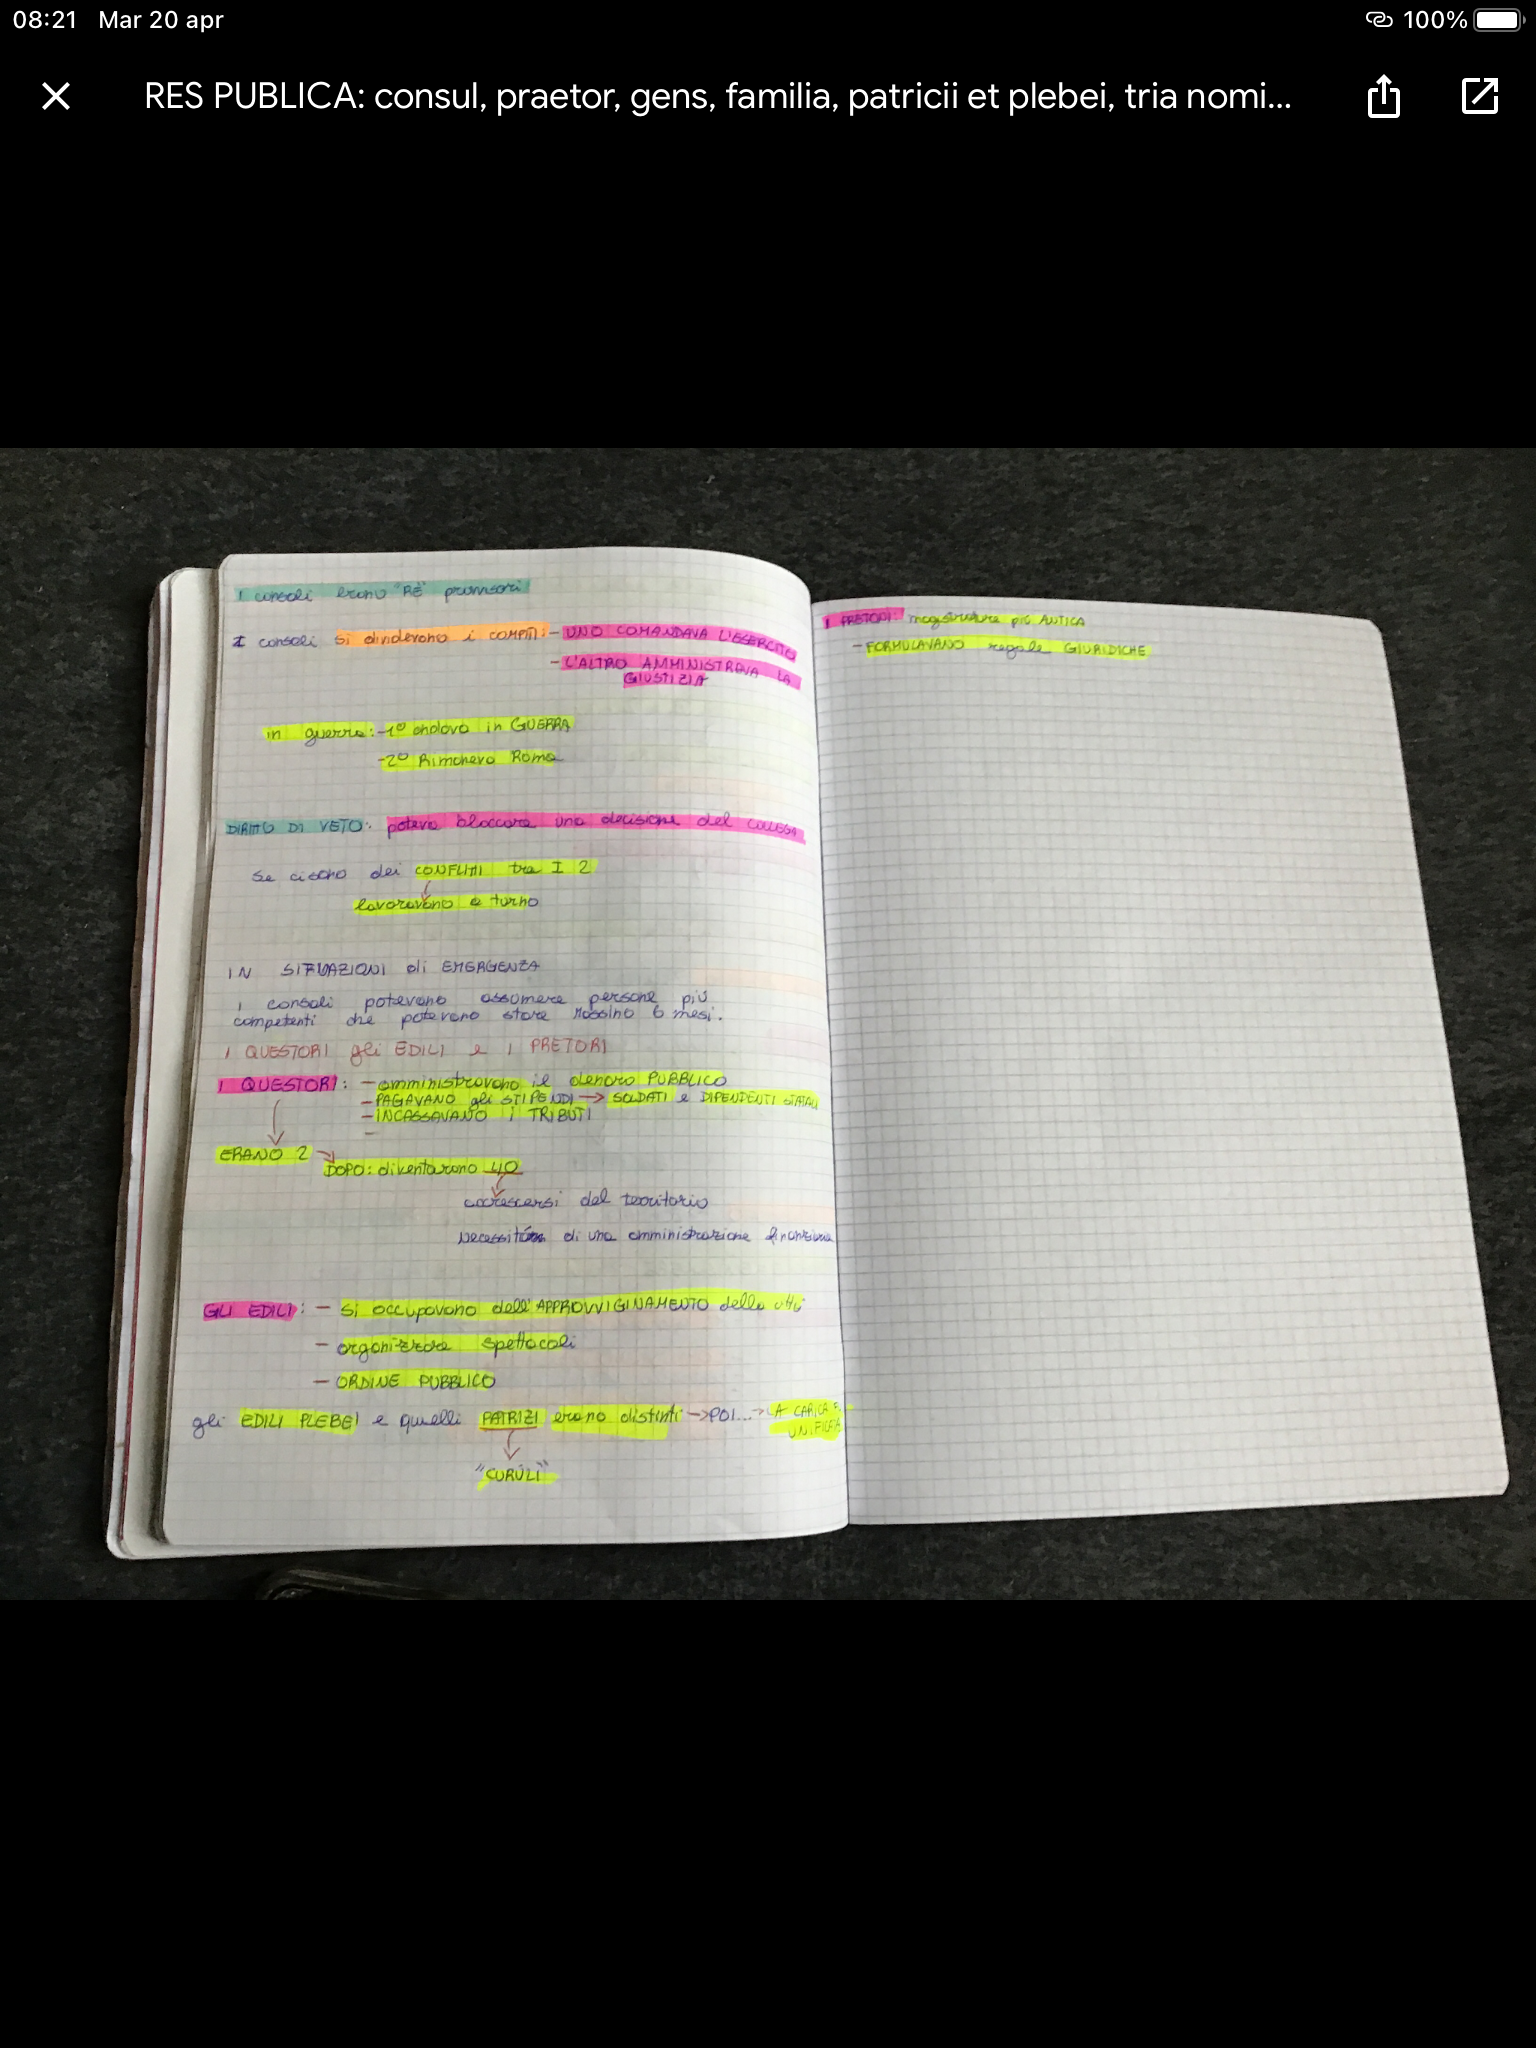 08:21 Mar 20 apr
100%
RES PUBLICA: consul, praetor, gens, familia, patricii et plebei, tria nomi...
I consoli erano "RE" provvisori
I consoli si dividevano i COMPITI: - UNO COMANDAVA L'ESERCITO
- L'ALTRO AMMINISTRAVA LA
GIUSTIZIA
in guerra: - 1° andava in GUERRA
- 2° Rimaneva Roma
DIRITTO DI VETO: poteva bloccare una decisione del COLLEGA
Se ci sono dei CONFLITTI tra I 2
lavoravano a turno
IN SITUAZIONI di EMERGENZA
I consoli potevano assumere persone più
competenti che potevano stare Massimo 6 mesi.
I QUESTORI gli EDILI e I PRETORI
I QUESTORI: - amministravano il denaro PUBBLICO
- PAGAVANO gli STIPENDI → SOLDATI e DIPENDENTI STATALI
- INCASSAVANO I TRIBUTI
-
ERANO 2 → DOPO: diventarono 40
accrescersi del territorio
di una amministrazione finanziaria
GLI EDILI: - si occupavano dell'APPROVVIGINAMENTO della città
- organizzare spettacoli
- ORDINE PUBBLICO
gli EDILI PLEBEI e quelli PATRIZI erano distinti → POI... → LA CARICA
UNIFICATA
"CURÚLI"
I PRETORI: magistratura più ANTICA
- FORMULAVANO regole GIURIDICHE